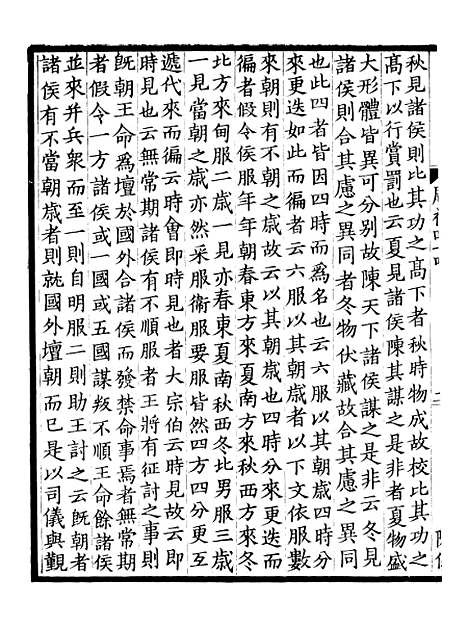 秋見諸侯則比其功之髙下者秋時物成故校比其功之
髙下以行賞罰也云夏見諸侯陳其謀之是非者夏物盛
大形體皆異可分别故陳天下諸侯謀之是非云冬見
諸侯則合其慮之異同者冬物伏藏故合其慮之異同
也此四者皆因四時而為名也云六服以其朝歲四時分
來更迭如此而徧者云六服以其朝歲者以下文依服數
來朝則有不朝之歲故云以其朝歲也四時分來更迭而
徧者假令侯服年年朝春東方來夏南方來秋西方來冬
北方來甸服二歲一見亦春東夏南秋西冬北男服三歲
一見當朝之歲亦然采服衛服要服皆然四方四分更互
遞代來而徧云時會即時見也者大宗伯云時見故云即
時見也云無常期諸侯有不順服者王將有征討之事則
旣朝王命為壇於國外合諸侯而發禁命事焉者無常期
者假令一方諸侯或一國或五國謀叛不順王命餘諸侯
並來并兵衆而至一則自明服二則助王討之云旣朝者
諸侯有不當朝歲者則就國外壇朝而已是以司儀與覲